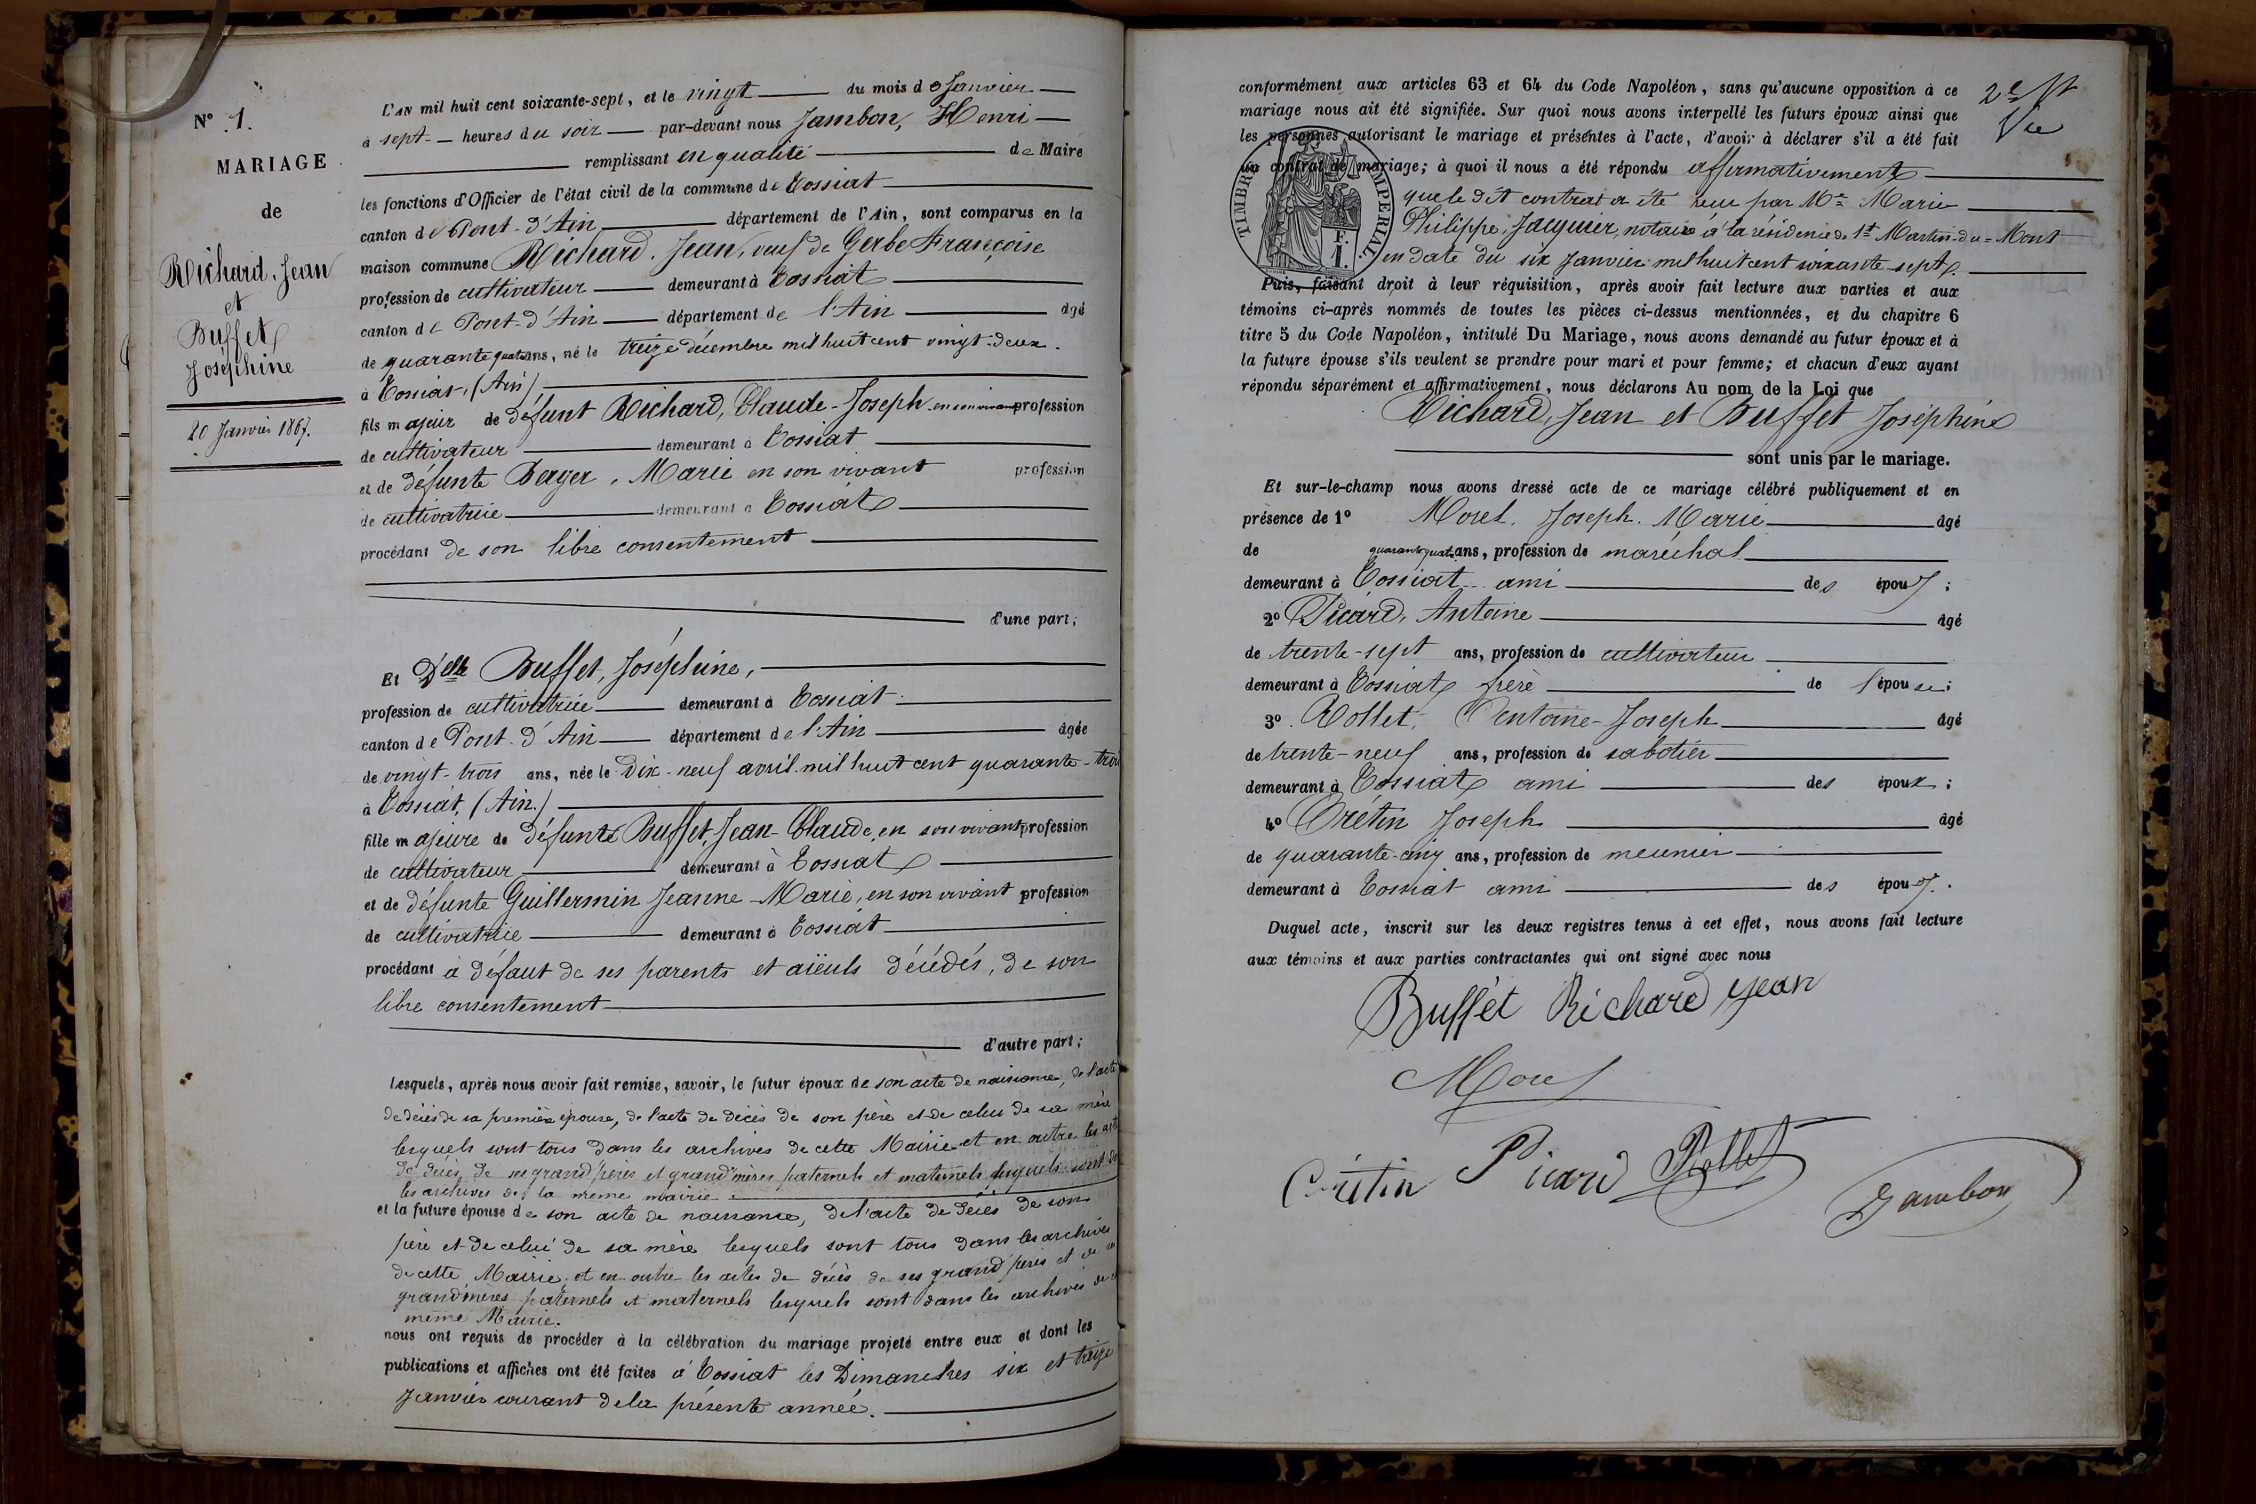 N° 1.
MARIAGE
de
Richard, Jean
et
Buffet
Joséphine
20 Janvier 1867.
L'AN mil huit cent soixante-sept, et le vingt du mois de Janvier
à sept heures du soir par-devant nous Jambon, Henri
remplissant en qualité de Maire
les fonctions d'Officier de l'état civil de la commune de Tossiat
canton de Pont-d'Ain département de l'Ain, sont comparus en la
maison commune Richard, Jean, veuf de Gerbe Françoise
profession de cultivateur demeurant à Tossiat
canton de Pont-d'Ain département de l'Ain âgé
de quarante quatre ans, né le treize décembre mil huit cent vingt-deux.
à Tossiat, (Ain)
fils majeur de défunt Richard, Claude-Joseph en son vivant profession
de cultivateur demeurant à Tossiat
et de défunte Berger, Marie en son vivant profession
de cultivatrice demeurant à Tossiat
procédant de son libre consentement
d'une part;
Et Delle Buffet, Joséphine,
profession de cultivatrice demeurant à Tossiat
canton de Pont-d'Ain département de l'Ain âgée
de vingt-trois ans, née le dix-neuf avril mil huit cent quarante-trois
à Tossiat, (Ain.)
fille majeure de défunt Buffet, Jean-Claude, en son vivant profession
de cultivateur demeurant à Tossiat
et de défunte Guillermin Jeanne-Marie, en son vivant profession
de cultivatrice demeurant à Tossiat
procédant à défaut de ses parents et aïeuls décédés, de son
libre consentement
d'autre part;
Lesquels, après nous avoir fait remise, savoir, le futur époux de son acte de naissance, de l'acte
de décès de sa première épouse, de l'acte de décès de son père et de celui de sa mère
lesquels sont tous dans les archives de cette Mairie et en outre les actes
de décès de ses grand'pères et grand'mères paternels et maternels, lesquels sont dans
les archives de la même mairie
et la future épouse de son acte de naissance, de l'acte de décès de son
père et de celui de sa mère lesquels sont tous dans les archives
de cette Mairie, et en outre les actes de décès de ses grand'pères et de ses
grand'mères paternels et maternels lesquels sont dans les archives de la
même Mairie.
nous ont requis de procéder à la célébration du mariage projeté entre eux et dont les
publications et affiches ont été faites à Tossiat les Dimanches six et treize
Janvier courant de la présente année.
2e St
Vu
conformément aux articles 63 et 64 du Code Napoléon, sans qu'aucune opposition à ce
mariage nous ait été signifiée. Sur quoi nous avons interpellé les futurs époux ainsi que
les personnes autorisant le mariage et présentes à l'acte, d'avoir à déclarer s'il a été fait
un contrat de mariage; à quoi il nous a été répondu affirmativement
TIMBRE IMPERIAL.
F.
1.
que le dit contrat a été reçu par Me Marie
Philippe, Jacquier, notaire à la résidence de St Martin-du-Mont
en date du six Janvier mil huit cent soixante sept.
Puis, faisant droit à leur réquisition, après avoir fait lecture aux parties et aux
témoins ci-après nommés de toutes les pièces ci-dessus mentionnées, et du chapitre 6
titre 5 du Code Napoléon, intitulé Du Mariage, nous avons demandé au futur époux et à
la future épouse s'ils veulent se prendre pour mari et pour femme; et chacun d'eux ayant
répondu séparément et affirmativement, nous déclarons Au nom de la Loi que
Richard, Jean et Buffet Joséphine
sont unis par le mariage.
Et sur-le-champ nous avons dressé acte de ce mariage célébré publiquement et en
présence de 1° Morel, Joseph, Marie âgé
de quarante quatre ans, profession de maréchal
demeurant à Tossiat ami des époux;
2° Picard, Antoine âgé
de trente-sept ans, profession de cultivateur
demeurant à Tossiat frère de l'épouse;
3° Rollet, Antoine-Joseph âgé
de trente-neuf ans, profession de sabotier
demeurant à Tossiat ami des époux;
4° Crétin Joseph âgé
de quarante-cinq ans, profession de meunier
demeurant à Tossiat ami des époux.
Duquel acte, inscrit sur les deux registres tenus à cet effet, nous avons fait lecture
aux témoins et aux parties contractantes qui ont signé avec nous
Buffet Richard Jean
Morel
Crétin Picard Rollet
Jambon